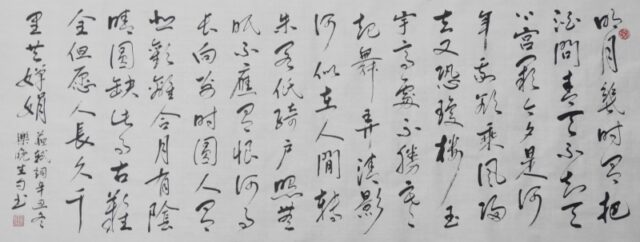 明月幾时有把
酒問青天不知天
上宫阙今夕是何
年我欲乘風歸
去又恐瓊樓玉
宇高處不勝寒
起舞弄清影
何似在人間轉
朱阁低绮户照無
眠不應有恨何事
长向别时圆人有
悲歡離合月有陰
晴圆缺此事古難
全但愿人長久千
里共婵娟
蘇軾詞辛丑冬